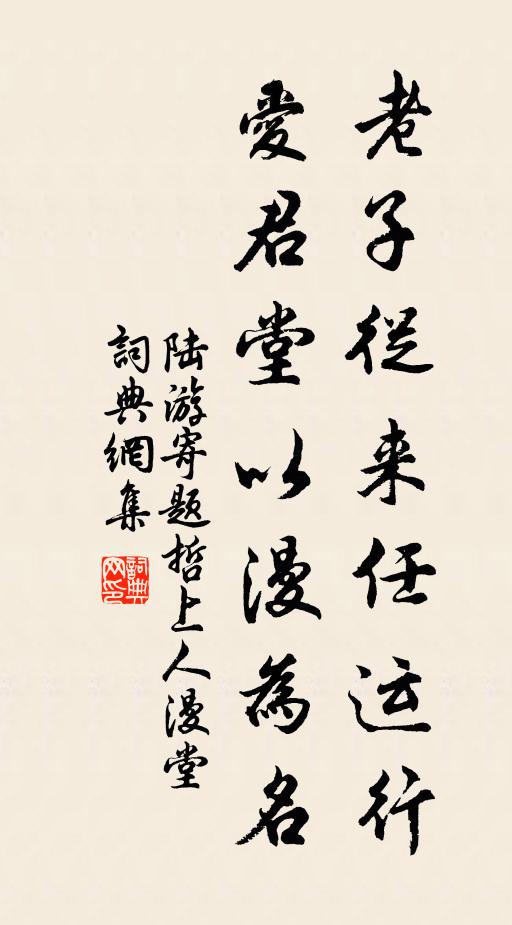 老子從来任运行
愛君堂以漫為名
陆游寄题哲上人漫堂
詞典網集
詞典网印